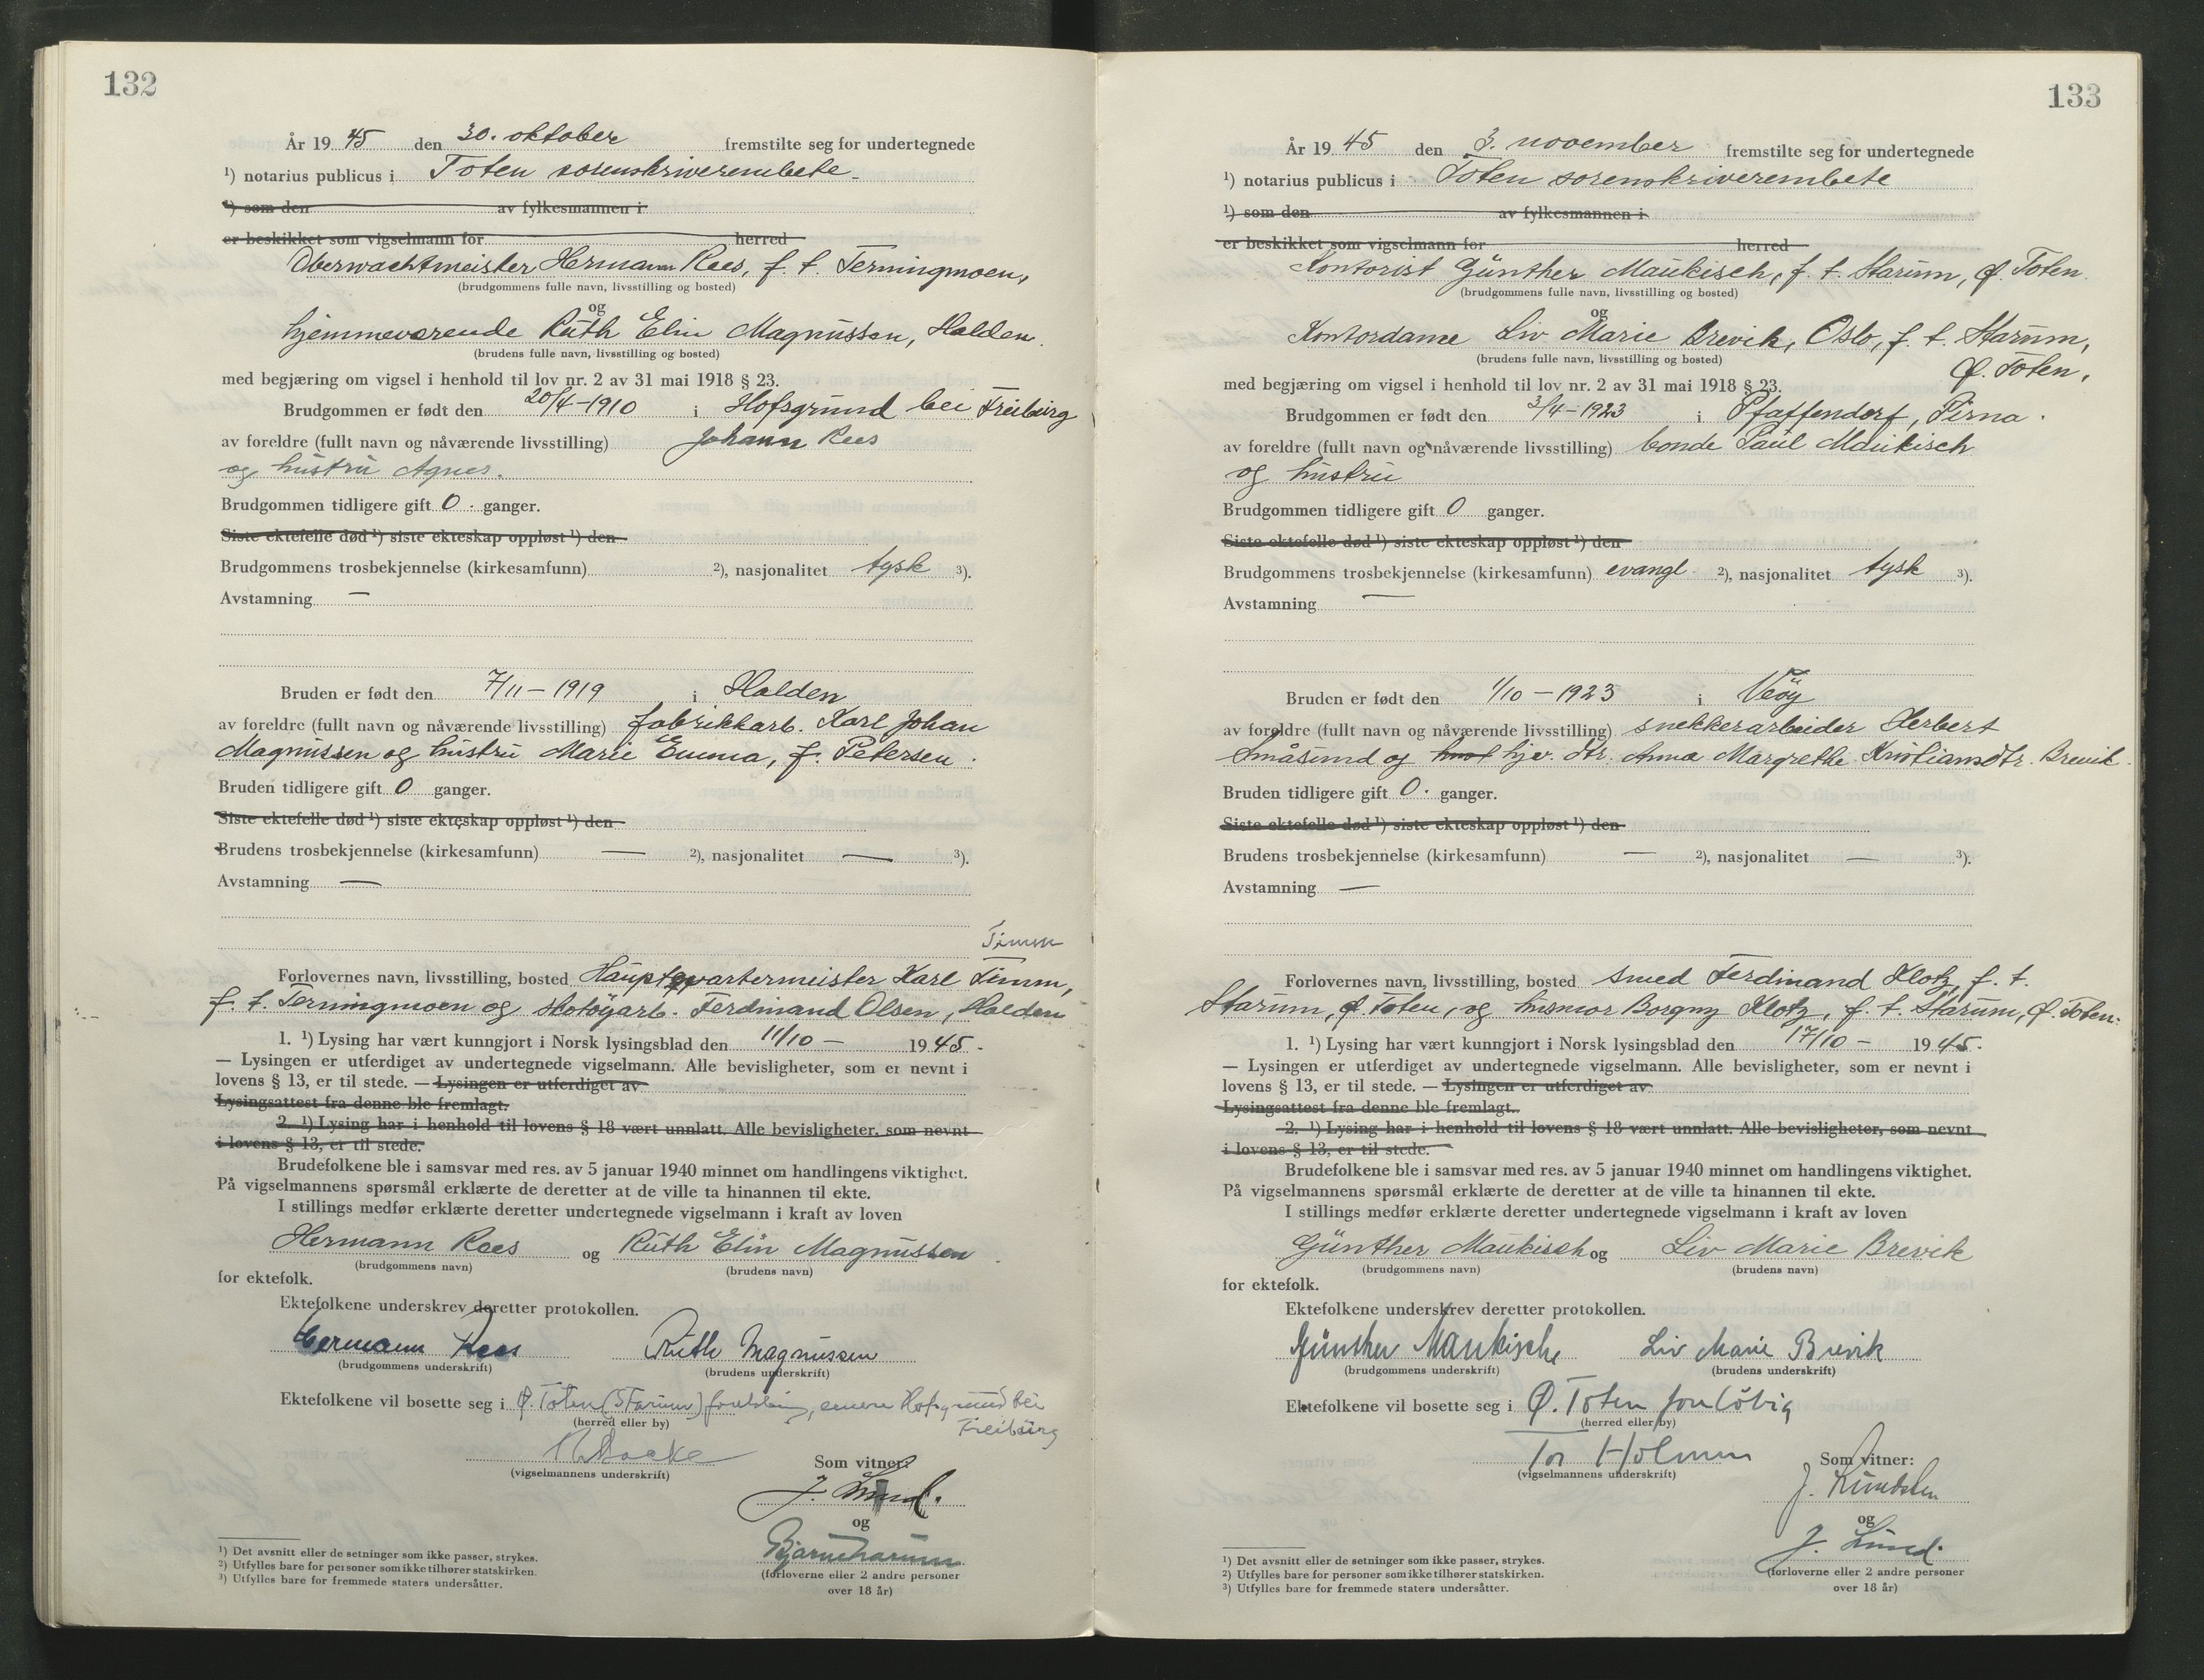 132
År 19 45 den 30. oktober fremstilte seg for undertegnede
¹) notarius publicus i Toten sorenskriverembete
¹) som den av fylkesmannen i
er beskikket som vigselmann for herred
Oberwachtmeister Hermann Rees, f. t. Terningmoen,
(brudgommens fulle navn, livsstilling og bosted)
og
hjemmeværende Ruth Elin Magnussen, Halden.
(brudens fulle navn, livsstilling og bosted)
med begjæring om vigsel i henhold til lov nr. 2 av 31 mai 1918 § 23.
Brudgommen er født den 20/4-1910 i Hofsgrund bei Freiburg
av foreldre (fullt navn og nåværende livsstilling) Johann Rees
og hustru Agnes.
Brudgommen tidligere gift 0 ganger.
Siste ektefelle død ¹) siste ekteskap oppløst ¹) den
Brudgommens trosbekjennelse (kirkesamfunn) ²), nasjonalitet tysk ³).
Avstamning —
Bruden er født den 7/11 - 1919 i Halden
av foreldre (fullt navn og nåværende livsstilling) fabrikkarb. Karl Johan
Magnussen og hustru Marie Emma, f. Petersen.
Bruden tidligere gift 0 ganger.
Siste ektefelle død ¹) siste ekteskap oppløst ¹) den
Brudens trosbekjennelse (kirkesamfunn) — ²), nasjonalitet — ³).
Avstamning —
Timm
Forlovernes navn, livsstilling, bosted Hauptqvartermeister Karl Timm,
f. t. Terningmoen og skotøyarb. Ferdinand Olsen, Halden
1. ¹) Lysing har vært kunngjort i Norsk lysingsblad den 11/10 - 19 45.
— Lysingen er utferdiget av undertegnede vigselmann. Alle bevisligheter, som er nevnt i
lovens § 13, er til stede. — Lysingen er utferdiget av
Lysingsattest fra denne ble fremlagt.
2. ¹) Lysing har i henhold til lovens § 18 vært unnlatt. Alle bevisligheter, som nevnt
i lovens § 13, er til stede.
Brudefolkene ble i samsvar med res. av 5 januar 1940 minnet om handlingens viktighet.
På vigselmannens spørsmål erklærte de deretter at de ville ta hinannen til ekte.
I stillings medfør erklærte deretter undertegnede vigselmann i kraft av loven
Hermann Rees og Ruth Elin Magnussen
(brudgommens navn) (brudens navn)
for ektefolk.
Ektefolkene underskrev deretter protokollen.
Hermann Rees Ruth Magnussen
(brudgommens underskrift) (brudens underskrift)
Ektefolkene vil bosette seg i Ø. Toten (Starum) foreløbig, senere Hofsgrund bei
(herred eller by) Freiburg
(vigselmannens underskrift) Som vitner:
J. Lund.
og
(forloverne eller 2 andre personer
over 18 år)
¹) Det avsnitt eller de setninger som ikke passer, strykes.
²) Utfylles bare for personer som ikke tilhører statskirken.
³) Utfylles bare for fremmede staters undersåtter.
133
År 19 45 den 3. november fremstilte seg for undertegnede
¹) notarius publicus i Toten sorenskriverembete
¹) som den av fylkesmannen i
er beskikket som vigselmann for herred
Kontorist Günther Maukisch, f. t. Starum, Ø. Toten.
(brudgommens fulle navn, livsstilling og bosted)
og
Kontordame Liv Marie Brevik, Oslo, f. t. Starum,
(brudens fulle navn, livsstilling og bosted)
Ø. Toten,
med begjæring om vigsel i henhold til lov nr. 2 av 31 mai 1918 § 23.
Brudgommen er født den 3/4-1923 i Pfaffendorf, Pirna.
av foreldre (fullt navn og nåværende livsstilling) bonde Paul Maukisch
og hustru
Brudgommen tidligere gift 0 ganger.
Siste ektefelle død ¹) siste ekteskap oppløst ¹) den
Brudgommens trosbekjennelse (kirkesamfunn) evangl. ²), nasjonalitet tysk ³).
Avstamning —
Bruden er født den 1/10 - 1923 i Veøy
av foreldre (fullt navn og nåværende livsstilling) snekkerarbeider Herbert
Småsund og hust hjv. dtr. Anna Margrethe Kristiansdtr. Brevik.
Bruden tidligere gift 0. ganger.
Siste ektefelle død ¹) siste ekteskap oppløst ¹) den
Brudens trosbekjennelse (kirkesamfunn) — ²), nasjonalitet — ³).
Avstamning —
Forlovernes navn, livsstilling, bosted smed Ferdinand Klotz, f. t.
Starum, Ø. Toten, og husmor Borgny Klotz, f. t. Starum, Ø. Toten.
1. ¹) Lysing har vært kunngjort i Norsk lysingsblad den 17/10 - 19 45.
— Lysingen er utferdiget av undertegnede vigselmann. Alle bevisligheter, som er nevnt i
lovens § 13, er til stede. — Lysingen er utferdiget av
Lysingsattest fra denne ble fremlagt.
2. ¹) Lysing har i henhold til lovens § 18 vært unnlatt. Alle bevisligheter, som nevnt
i lovens § 13, er til stede.
Brudefolkene ble i samsvar med res. av 5 januar 1940 minnet om handlingens viktighet.
På vigselmannens spørsmål erklærte de deretter at de ville ta hinannen til ekte.
I stillings medfør erklærte deretter undertegnede vigselmann i kraft av loven
Günther Maukisch og Liv Marie Brevik
(brudgommens navn) (brudens navn)
for ektefolk.
Ektefolkene underskrev deretter protokollen.
Günther Maukisch Liv Marie Brevik
(brudgommens underskrift) (brudens underskrift)
Ektefolkene vil bosette seg i Ø. Toten foreløbig
(herred eller by)
Tor Holmen Som vitner:
(vigselmannens underskrift)
J. Knudsen
og
J. Lund.
(forloverne eller 2 andre personer
over 18 år)
¹) Det avsnitt eller de setninger som ikke passer, strykes.
²) Utfylles bare for personer som ikke tilhører statskirken.
³) Utfylles bare for fremmede staters undersåtter.